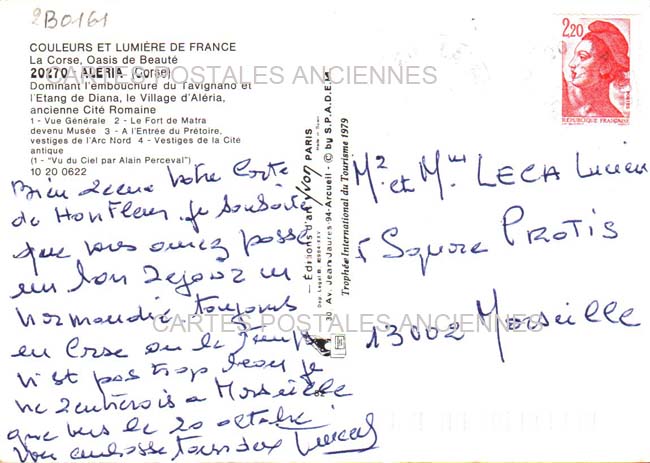 2B0161
COULEURS ET LUMIÈRE DE FRANCE
La Corse, Oasis de Beauté
20270 - ALERIA (Corse)
Dominant l'embouchure du Tavignano et
l'Etang de Diana, le Village d'Aléria,
ancienne Cité Romaine
1 - Vue Générale 2 - Le Fort de Matra
devenu Musée 3 - A l'Entrée du Prétoire,
vestiges de l'Arc Nord 4 - Vestiges de la Cité
antique
(1 - "Vu du Ciel par Alain Perceval")
10 20 0622
Bien recu votre Carte
de Honfleur. je souhaite
que vous aviez passé
un bon sejour en
Normandie. toujours
en Corse ou le temps
n'est pas trop beau je
ne rentrerois a Morseille
que vers le 20 octobre
vous embrasse tous deux
— Editions d'art yvon PARIS —
30 Av. Jean Jaures-94-Arcueil - © by S.P.A.D.E.M
Trophée International du Tourisme 1979
2,20
REPUBLIQUE FRANCAISE
Mr et Mme LECA Lucien
5 Square PROTIS
13002 Morseille
CARTES POSTALES ANCIENNES
CARTES POSTALES ANCIENNES